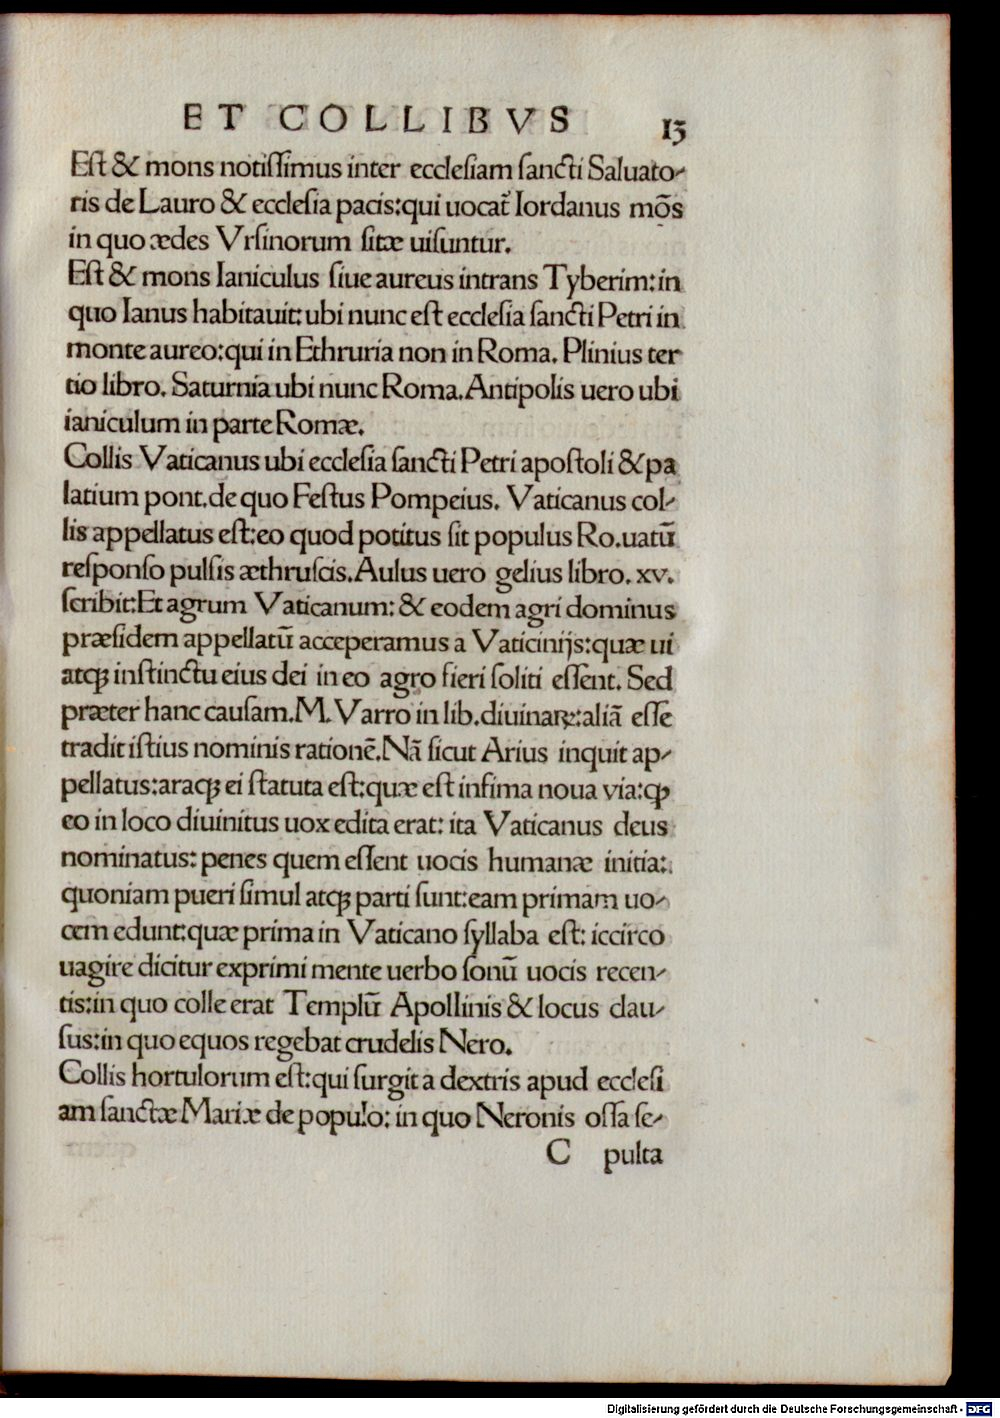 ET COLLIBVS 13
Eſt & mons notiſſimus inter eccleſiam ſancti Saluato-
ris de Lauro & eccleſia pacis:qui uocat̃ Iordanus mõs
in quo ædes Vrſinorum ſitæ uiſuntur.
Eſt & mons Ianiculus ſiue aureus intrans Tyberim:in
quo Ianus habitauit:ubi nunc eſt eccleſia ſancti Petri in
monte aureo:qui in Ethruria non in Roma. Plinius ter
tio libro. Saturnia ubi nunc Roma. Antipolis uero ubi
ianiculum in parte Romæ.
Collis Vaticanus ubi eccleſia ſancti Petri apoſtoli & pa
latium pont.de quo Feſtus Pompeius. Vaticanus col-
lis appellatus eſt:eo quod potitus ſit populus Ro.uatũ
reſponſo pulſis æthruſcis. Aulus uero gelius libro. xv.
ſcribit:Et agrum Vaticanum: & eodem agri dominus
præſidem appellatũ acceperamus a Vaticinijs:quæ ui
atqꝫ inſtinctu eius dei in eo agro fieri ſoliti eſſent. Sed
præter hanc cauſam. M. Varro in lib.diuinaꝝ:aliã eſſe
tradit iſtius nominis rationẽ. Nã ſicut Arius inquit ap-
pellatus:araqꝫ ei ſtatuta eſt:quæ eſt infima noua via:ꝙ
eo in loco diuinitus uox edita erat: ita Vaticanus deus
nominatus: penes quem eſſent uocis humanæ initia:
quoniam pueri ſimul atqꝫ parti ſunt:eam primam uo-
cem edunt:quæ prima in Vaticano ſyllaba eſt: iccirco
uagire dicitur exprimi mente uerbo ſonũ uocis recen-
tis:in quo colle erat Templũ Apollinis & locus clau-
ſus:in quo equos regebat crudelis Nero.
Collis hortulorum eſt:qui ſurgit a dextris apud eccleſi
am ſanctæ Mariæ de populo: in quo Neronis oſſa ſe-
C pulta
Digitalisierung gefördert durch die Deutsche Forschungsgemeinschaft - DFG